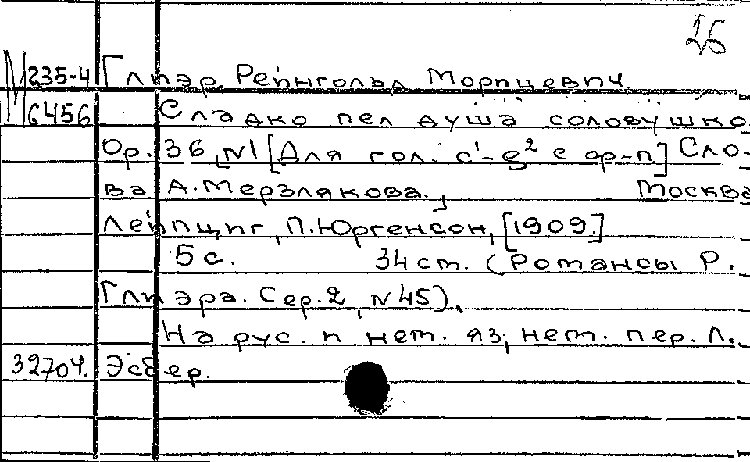 26
М 235-4 Глиэр, Рейнгольд Морицевич
6456 Сладко пел душа соловушко
Op. 36, N1 [Для гол. c¹-g² с ф-п] Сло-
ва А. Мерзлякова., Москва
Лейпциг, П. Юргенсон, [1909.]
5 с. 34 см. (Романсы Р.
Глиэра. Сер. 2, N45).
На рус. и нем. яз; нем. пер. Л.
32704. Эсбер.